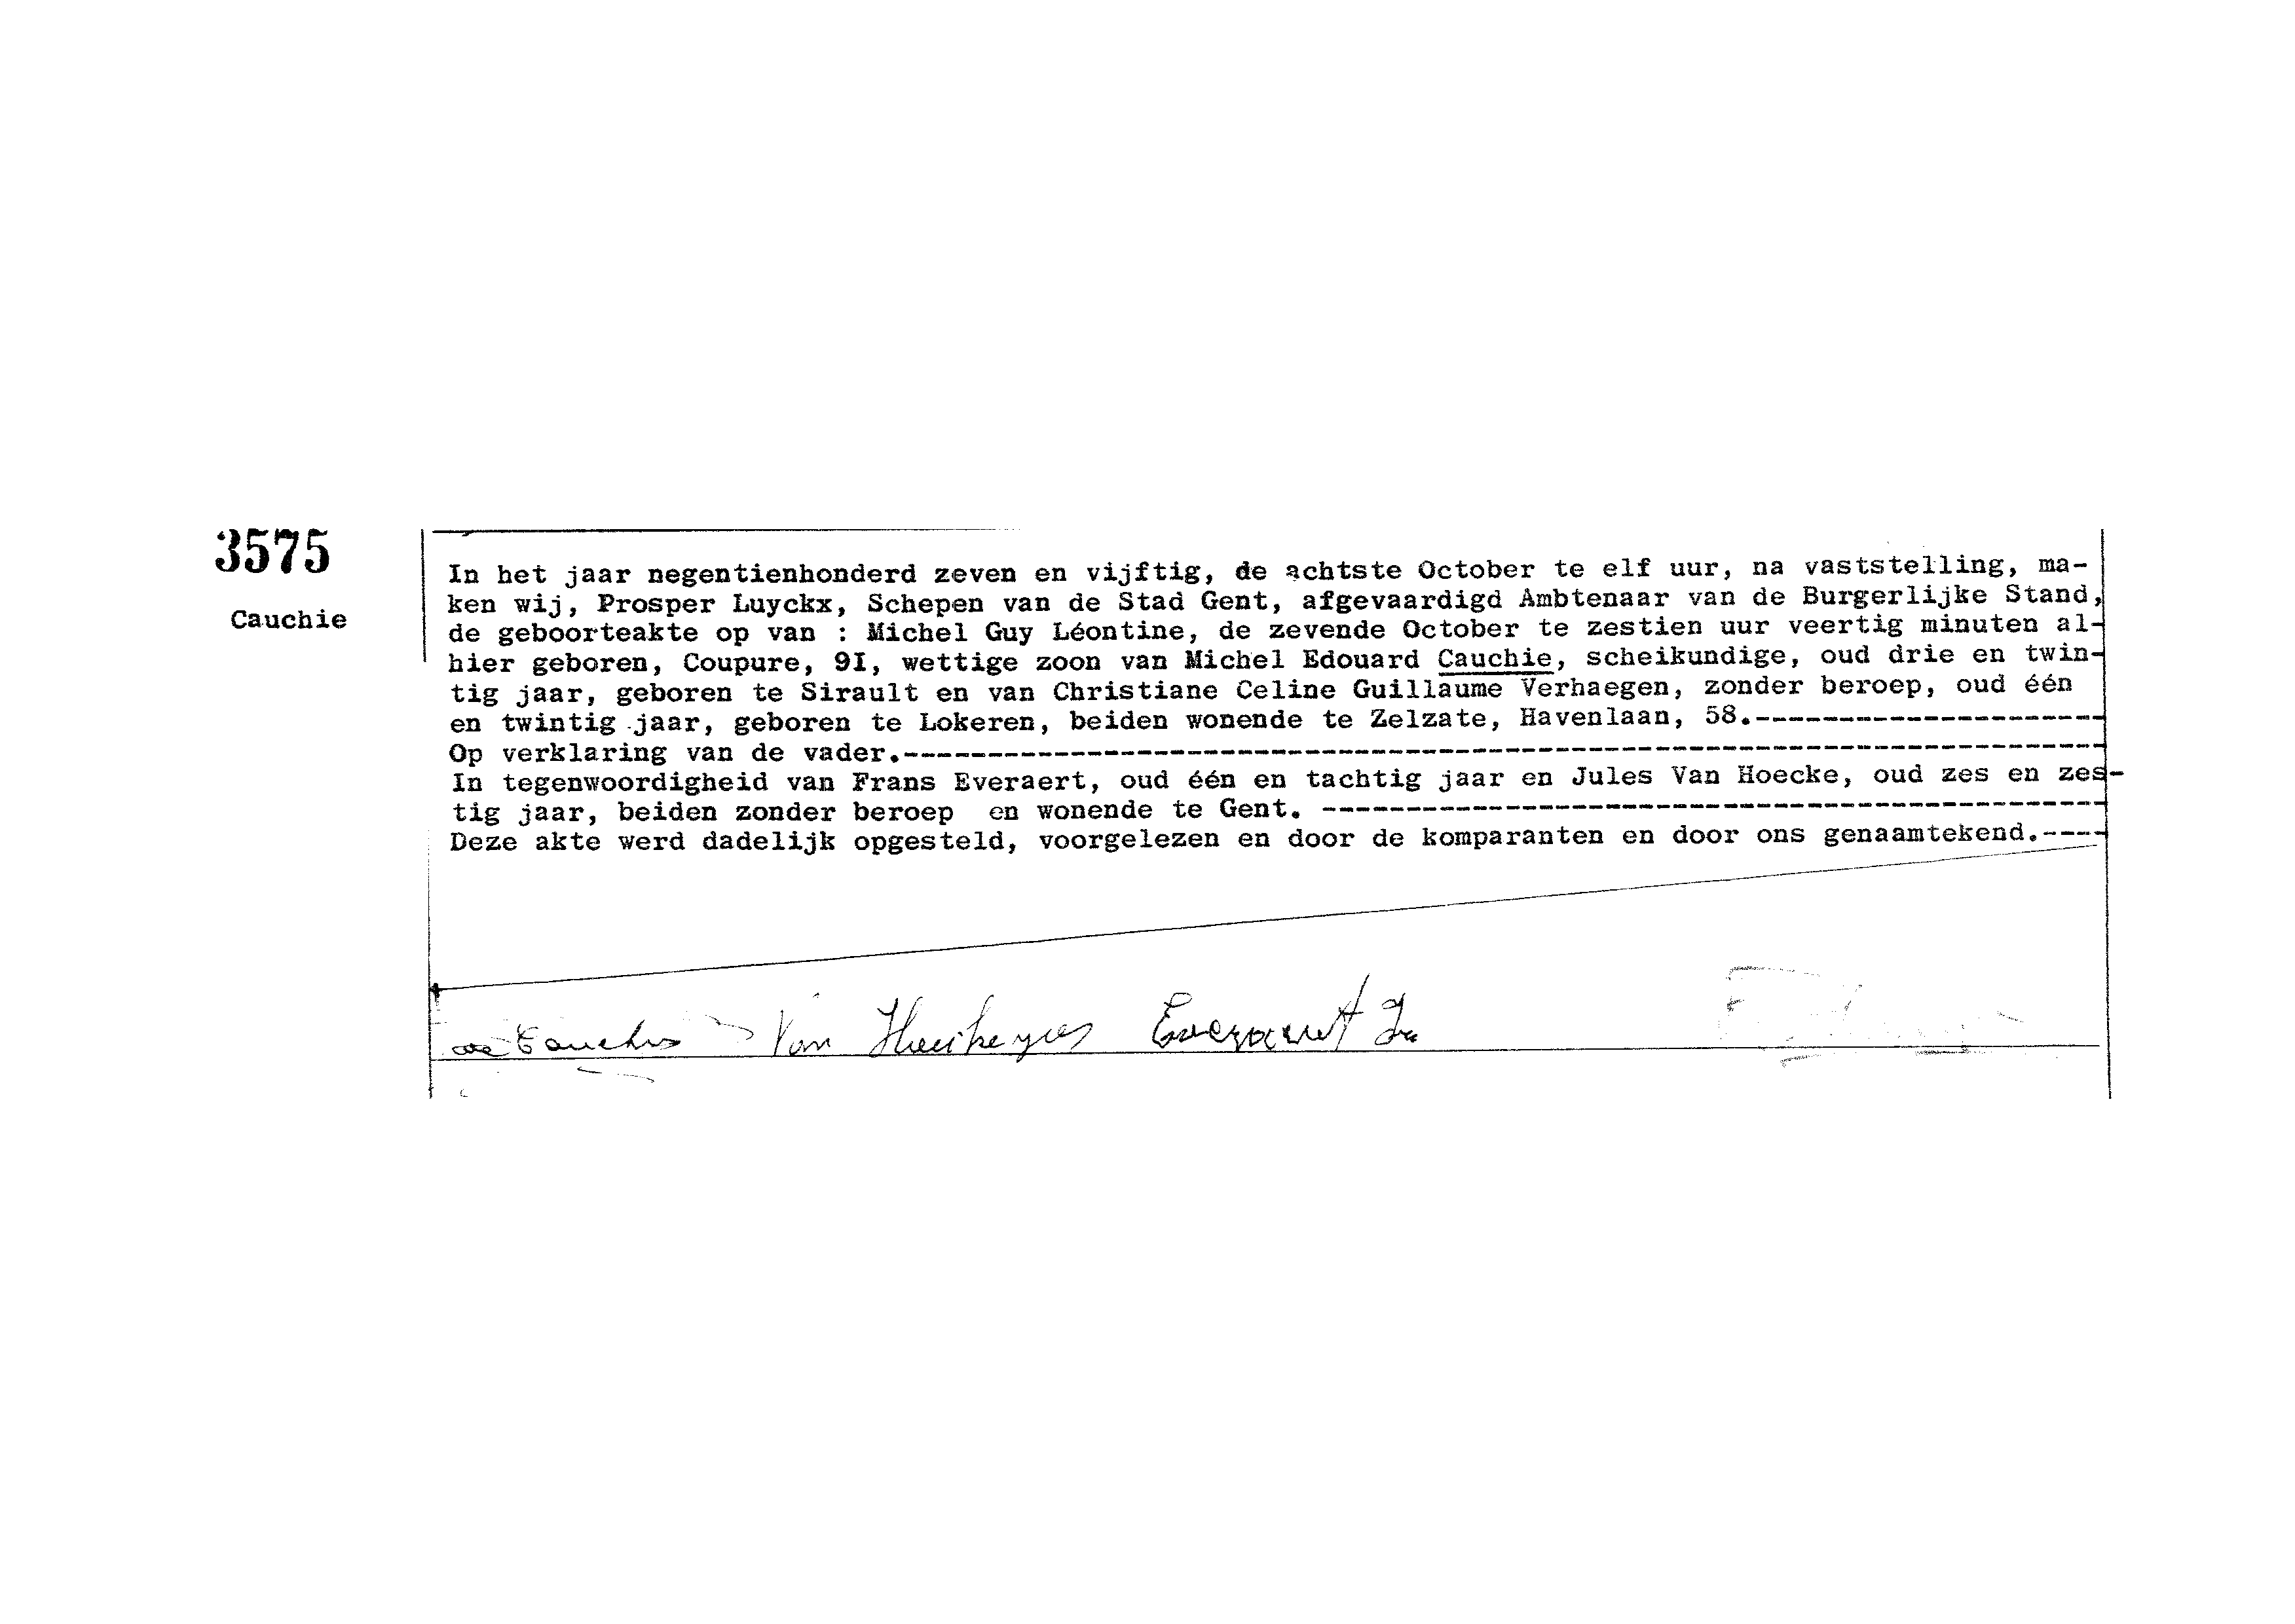 3575
Cauchie
In het jaar negentienhonderd zeven en vijftig, de achtste October te elf uur, na vaststelling, ma-
ken wij, Prosper Luyckx, Schepen van de Stad Gent, afgevaardigd Ambtenaar van de Burgerlijke Stand,
de geboorteakte op van : Michel Guy Léontine, de zevende October te zestien uur veertig minuten al-
hier geboren, Coupure, 9I, wettige zoon van Michel Edouard Cauchie, scheikundige, oud drie en twin-
tig jaar, geboren te Sirault en van Christiane Celine Guillaume Verhaegen, zonder beroep, oud één
en twintig jaar, geboren te Lokeren, beiden wonende te Zelzate, Havenlaan, 58.---------------------
Op verklaring van de vader.------------------------------------------------------------------------
In tegenwoordigheid van Frans Everaert, oud één en tachtig jaar en Jules Van Hoecke, oud zes en zes-
tig jaar, beiden zonder beroep en wonende te Gent. -----------------------------------------------
Deze akte werd dadelijk opgesteld, voorgelezen en door de komparanten en door ons genaamtekend.----
Cauchie Van Everaert